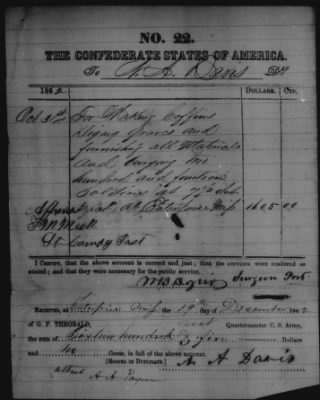 NO. 22.
THE CONFEDERATE STATES OF AMERICA.
To A. A. Davis Dr.
1862 DOLLARS. CTS.
Oct 31st For Making Coffins
Diging Graves and
furnishing all Materials
and burying two
hundred and fourteen
Soldiers at 7 1/2 Dol
1605 00
I CERTIFY, that the above account is correct and just; that the services were rendered as
stated; and that they were necessary for the public service.
Surgeon Post
RECEIVED, at Enterprise Miss the 19th day of December 1862
of G. P. THEOBALD, Quartermaster C. S. Army,
the sum of Sixteen hundred & five Dollars
and Cents, in full of the above account.
[SIGNED IN DUPLICATE.] A. A. Davis